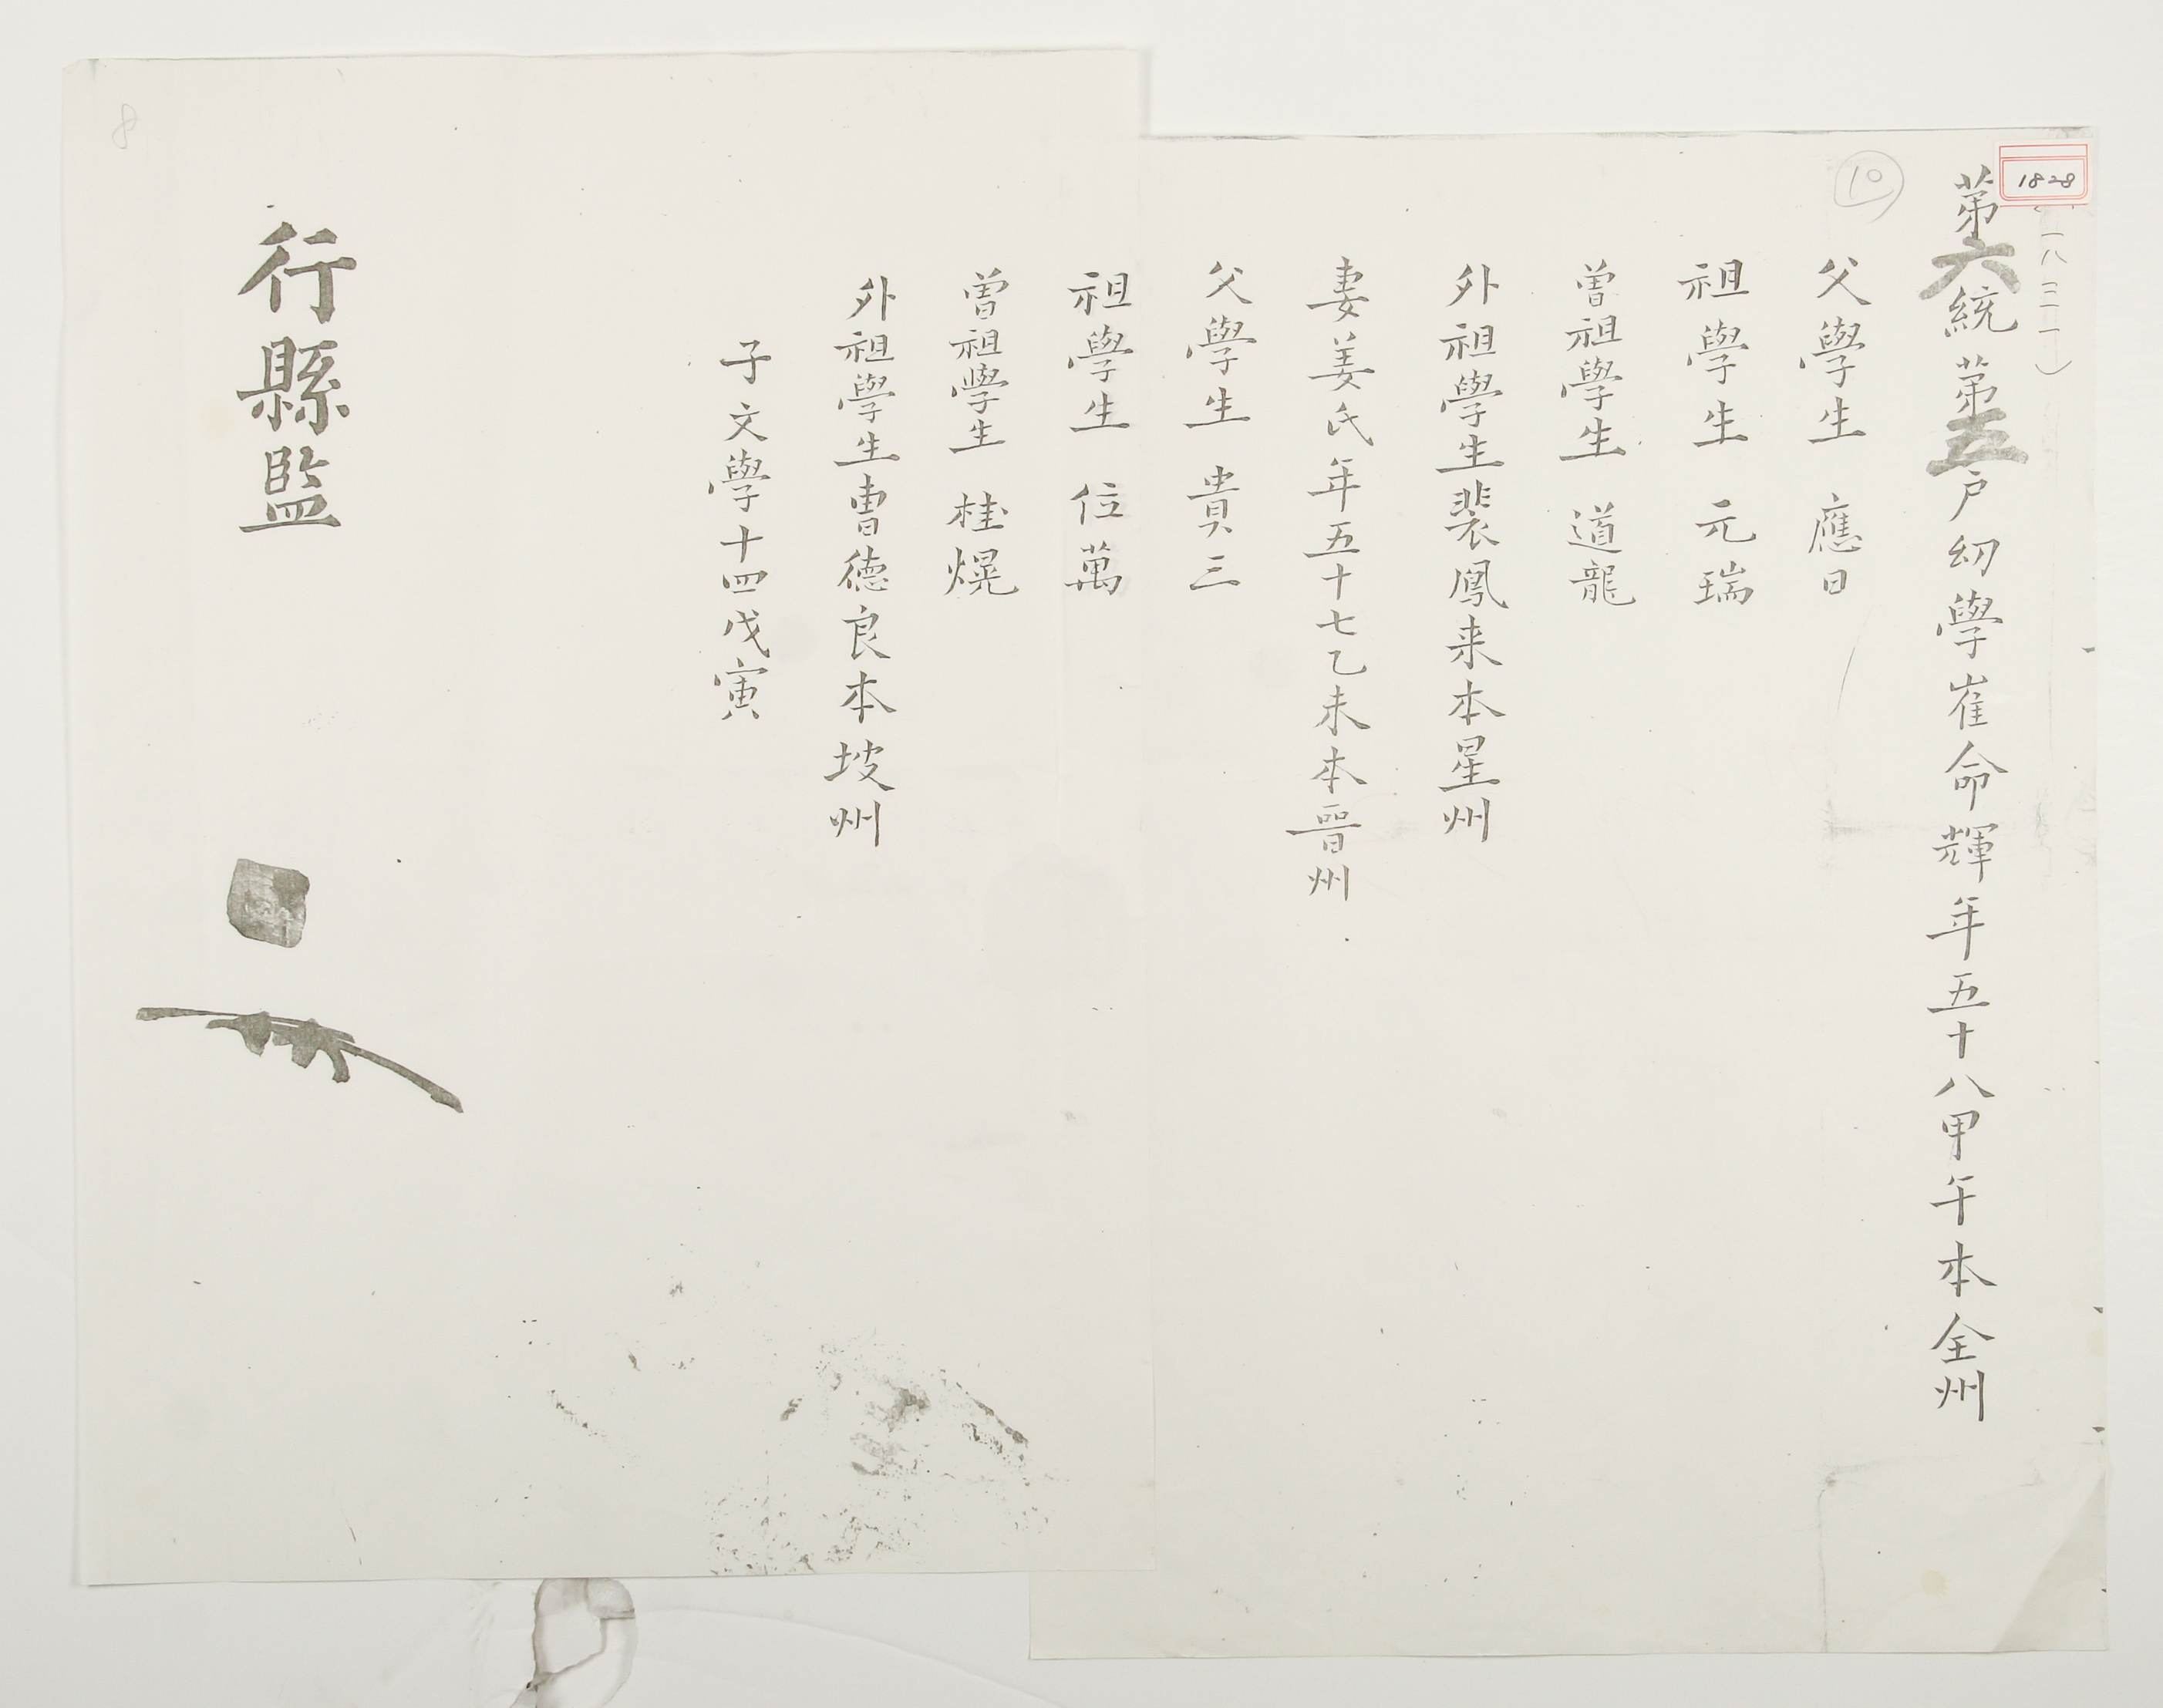 1828
(一八三一)
10
第六統第五戶幼學崔命輝年五十八甲午本全州
父學生 應日
祖學生 元瑞
曽祖學生 道龍
外祖學生裴鳳来本星州
妻姜氏年五十七乙未本晉州
父學生 貴三
祖學生 位萬
曽祖學生 桂熀
外祖學生曺德良本坡州
子文學十四戊寅
行縣監
8